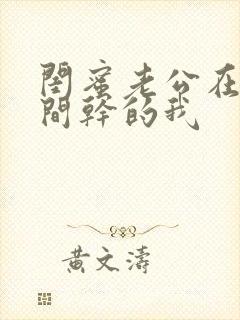 閨蜜老公在
間幹的我
黃文濤